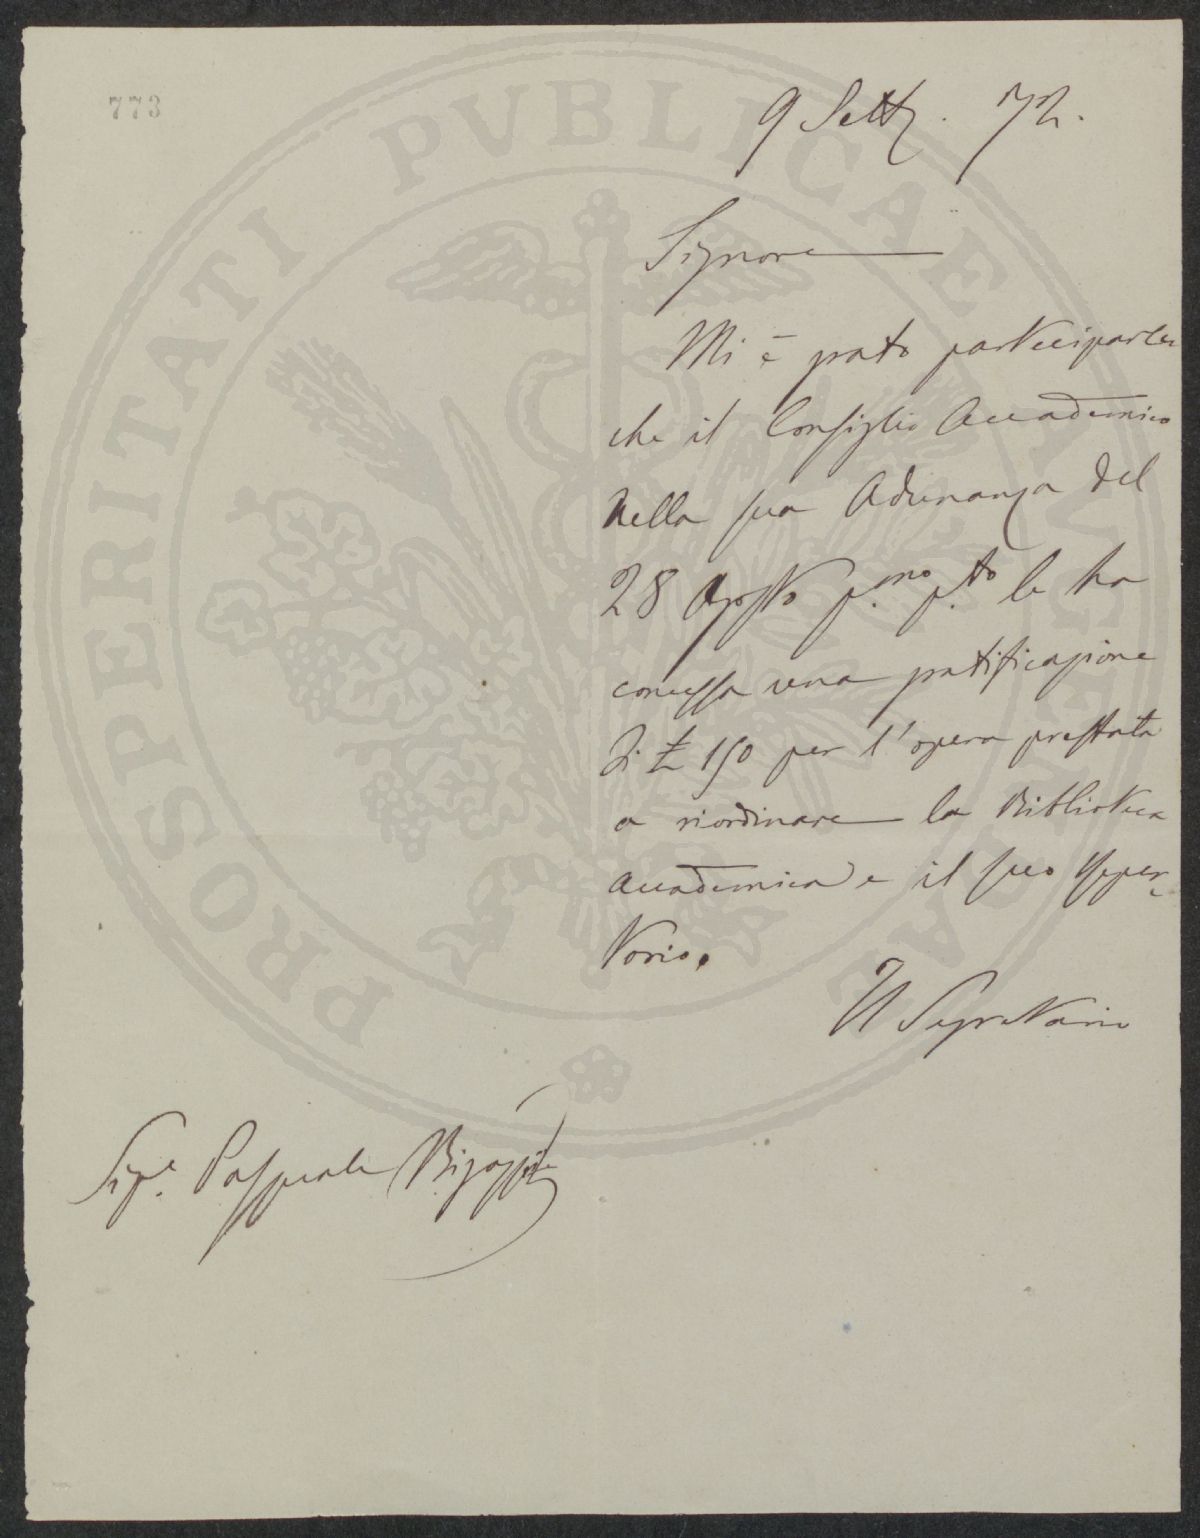 773
9 Sett. 72.
Signore
Mi è grato parteciparle
che il Consiglio Accademico
nella sua Adunanza del
28 Agosto p.mo p.to le ha
concessa una gratificazione
di £ 150 per l'opera prestata
a riordinare la Biblioteca
Accademica e il suo Reper-
torio.
Il Segretario
Sigr. Pasquale Bigazzi
PROSPERITATI PVBLICAE AVGENDAE